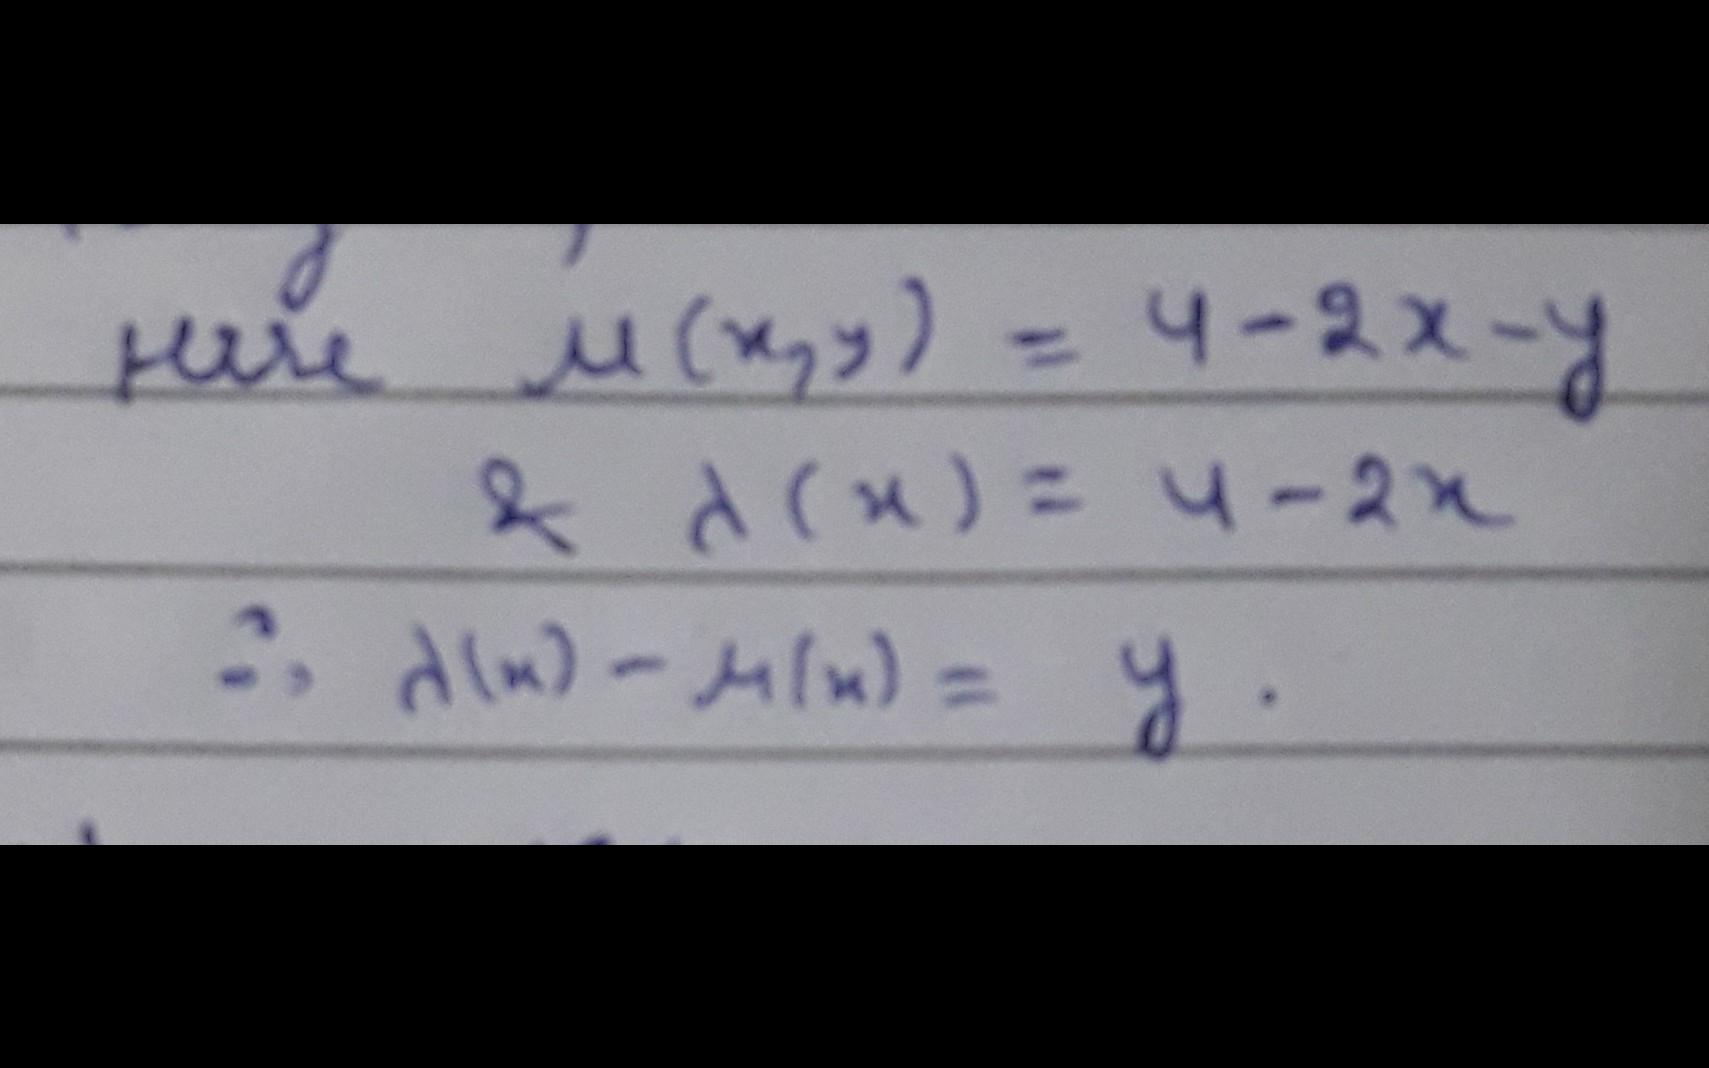 Here μ(x,y) = 4-2x-y
& λ(x) = 4-2x
∴ λ(x) - μ(x) = y .